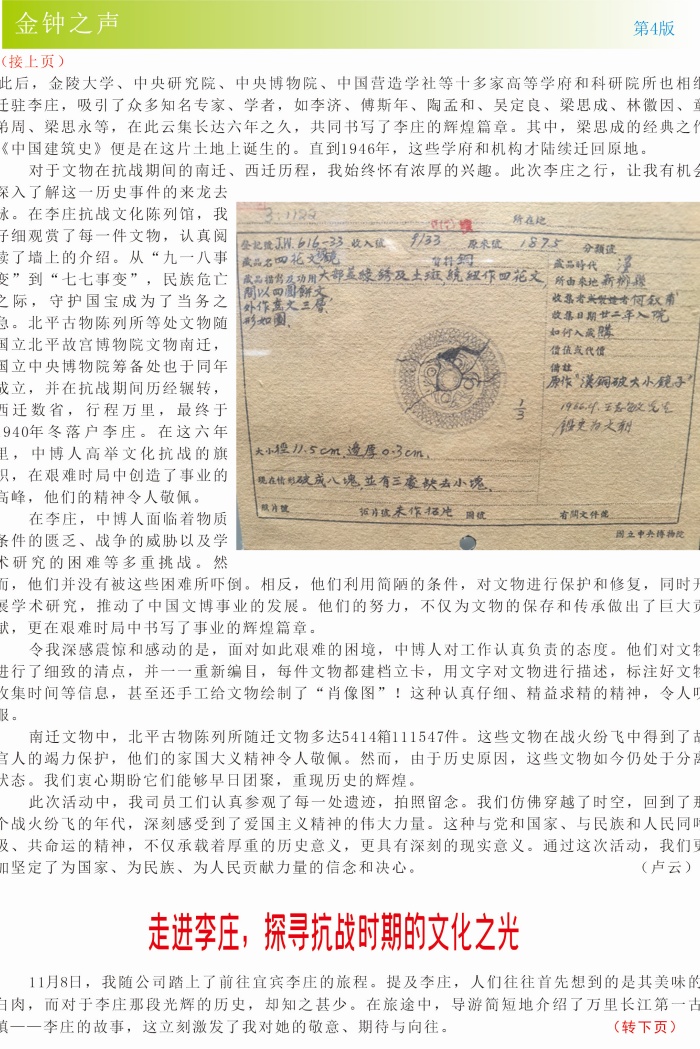 金钟之声
第4版
（接上页）
此后，金陵大学、中央研究院、中央博物院、中国营造学社等十多家高等学府和科研院所也相继
迁驻李庄，吸引了众多知名专家、学者，如李济、傅斯年、陶孟和、吴定良、梁思成、林徽因、童
弟周、梁思永等，在此云集长达六年之久，共同书写了李庄的辉煌篇章。其中，梁思成的经典之作
《中国建筑史》便是在这片土地上诞生的。直到1946年，这些学府和机构才陆续迁回原地。
对于文物在抗战期间的南迁、西迁历程，我始终怀有浓厚的兴趣。此次李庄之行，让我有机会
深入了解这一历史事件的来龙去
脉。在李庄抗战文化陈列馆，我
仔细观赏了每一件文物，认真阅
读了墙上的介绍。从“九一八事
变”到“七七事变”，民族危亡
之际，守护国宝成为了当务之
急。北平古物陈列所等处文物随
国立北平故宫博物院文物南迁，
国立中央博物院筹备处也于同年
成立，并在抗战期间历经辗转，
西迁数省，行程万里，最终于
1940年冬落户李庄。在这六年
里，中博人高举文化抗战的旗
帜，在艰难时局中创造了事业的
高峰，他们的精神令人敬佩。
在李庄，中博人面临着物质
条件的匮乏、战争的威胁以及学
术研究的困难等多重挑战。然
而，他们并没有被这些困难所吓倒。相反，他们利用简陋的条件，对文物进行保护和修复，同时开
展学术研究，推动了中国文博事业的发展。他们的努力，不仅为文物的保存和传承做出了巨大贡
献，更在艰难时局中书写了事业的辉煌篇章。
令我深感震惊和感动的是，面对如此艰难的困境，中博人对工作认真负责的态度。他们对文物
进行了细致的清点，并一一重新编目，每件文物都建档立卡，用文字对文物进行描述，标注好文物
收集时间等信息，甚至还手工给文物绘制了“肖像图”！这种认真仔细、精益求精的精神，令人叹
服。
南迁文物中，北平古物陈列所随迁文物多达5414箱111547件。这些文物在战火纷飞中得到了故
宫人的竭力保护，他们的家国大义精神令人敬佩。然而，由于历史原因，这些文物如今仍处于分离
状态。我们衷心期盼它们能够早日团聚，重现历史的辉煌。
此次活动中，我司员工们认真参观了每一处遗迹，拍照留念。我们仿佛穿越了时空，回到了那
个战火纷飞的年代，深刻感受到了爱国主义精神的伟大力量。这种与党和国家、与民族和人民同呼
吸、共命运的精神，不仅承载着厚重的历史意义，更具有深刻的现实意义。通过这次活动，我们更
加坚定了为国家、为民族、为人民贡献力量的信念和决心。 （卢云）
3:1122
所在地
登記號 J.W.616-33 收入號 9/33 原來號 1875 分類號
藏品名 四花文鏡 質料 銅
藏品描寫及功用 大部蓋綠銹及土斑，統紐作四花文，
間以四圓餅文
外作直文三層
形如圖.
藏品時代 漢
所由來地 新鄉縣
收集者 何敘甫
收集日期 廿二年入院
如何入藏 購
價值或代價
備註
原作“漢銅破大小鏡子”
1/3
大小 徑11.5cm, 邊厚0.3cm.
現在情形 破成八塊，並有三處缺去小塊.
照片號 拓片號 未作拓片 圖號 有關文件號
國立中央博物院
走进李庄，探寻抗战时期的文化之光
11月8日，我随公司踏上了前往宜宾李庄的旅程。提及李庄，人们往往首先想到的是其美味的
白肉，而对于李庄那段光辉的历史，却知之甚少。在旅途中，导游简短地介绍了万里长江第一古
镇——李庄的故事，这立刻激发了我对她的敬意、期待与向往。 （转下页）